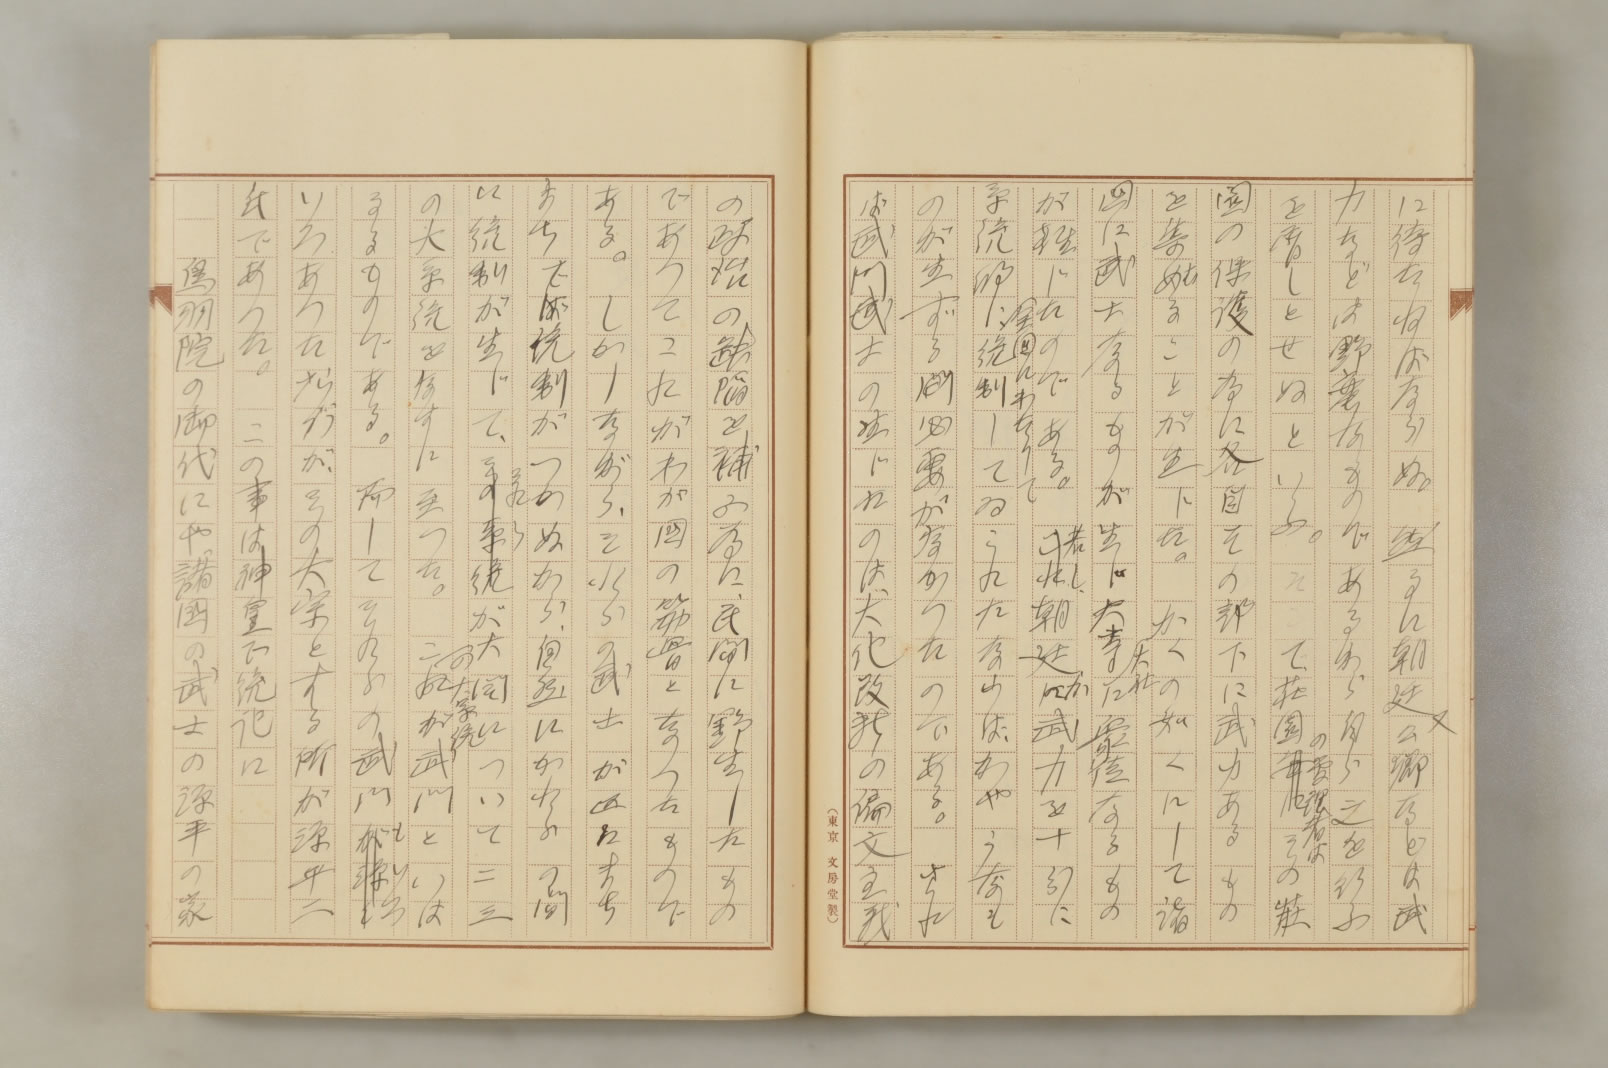 に待たねばならぬ。然るに朝廷又公卿などは武
力などは野蛮なものであるから自ら之を行ふ
を屑しとせぬといふ。そこで荘園の管理者はその荘
園の保護の為に各自その部下に武力あるもの
を集めることが生じた。かくの如くにして諸
国に武士なるものが生じ大寺大社に衆徒なるもの
が起じたのである。若し、朝廷が武力を十分に
系統的に全国にわたりて統制してゐられたならば、かやうなも
のが生ずる必要がなかつたのである。されば
武門武士の生じたのは大化改新の偏文主義
の政治の缺陥を補ふ為に、民間に野生したもの
であつてこれがわが国の筋骨となつたもので
ある。しかしながら、それらの武士が区々たち
まちでは統制がつかぬから、自然にかれらの間
に統制が生じて、系統が大国について二三
の大系統をなすに至つた。この大系統が武門といは
るるものである。而してそれらの武門もいろ
いろあつたらうが、その大宗とする所が源平二
氏であつた。この事は神皇正統記に
鳥羽院の御代にや諸国の武士の源平の家
(東京 文房堂製)